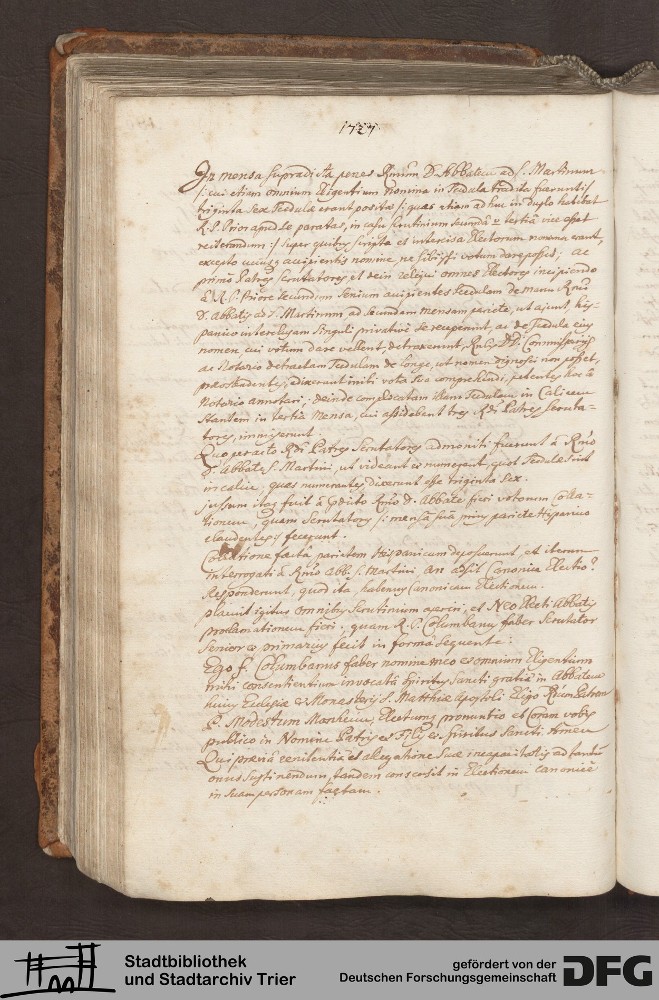 1727
In mensa supradicta penes Rmum D. Abbatem ad S. Martinum
/: cui etiam omnium Eligentium nomina in Scedula tradita fuerunt :/
triginta sex Scedulae erant positae /: quas etiam ad huc in duplo habebat
R. P. Prior apud se paratas, in casu scrutinium secunda vel tertia vice esset
reiterandum :/ super quibus scripta et intercisa Electorum nomina erant,
excepto cuiusq accipientis nomine, ne sibi ipsi votum dare possit; ac
primo Patres Scrutatores et dein reliqui omnes Electores incipiendo
à R. P. Priore secundum senium accipientes scedulam de manu Rmi
D. Abbatis ad S. Martinum ad secundam mensam pariete, ut ajunt, his-
panico interclusam singuli privative se receperunt, ac de scedula ejus
nomen, cui votum dare vellent, detraxerunt, Rndis DD. Commissariis
ac Notario detractam scedulam de longe, ut nomen dignosci non posset,
praeostendentes, dixerunt inibi vota sua comprehendi, petentes hoc à
Notario annotari; deinde complicatam illam scedulam in Calicem
stantem in tertia mensa, cui assidebant tres Rdi Patres Scruta-
tores, immiserunt.
Quo peracto Rdi Patres Scrutatores admoniti fuerunt à Rmo
D. Abbate S. Martini, ut videant et numerent, quot scedulae sint
in calice, quas numerantes dixerunt esse triginta sex.
Jussum itaq fuit à praedicto Rmo D. Abbate fieri votorum Colla-
tionem, quam Scrutatores /: mensa sua prius pariete Hispanico
claudentes :/ fecerunt.
Collatione facta parietem Hispanicum deposuerunt, et iterum
interrogati à Rmo Abb. S. Martini an adsit Canonica Electio?
Responderunt, quod ita, habemus Canonicam Electionem.
placuit igitur omnibus scrutinium aperiri, et Neo Electi Abbatis
proclamationem fieri, quam R. P. Columbanus faber Scrutator
senior et primarius fecit in forma sequente:
Ego f. Columbanus faber nomine meo et omnium Eligentium
mihi consentientium invocata Spiritus Sancti gratia in Abbatem
hujus Ecclesiae et Monasterii S. Matthiae Apostoli Eligo Rdum Patrem
P. Modestum Manheim, Electumq pronuntio et Coram vobis
publico in Nomine Patris et Filii et Spiritus Sancti. Amen
Qui praevia renitentia et allegatione suae incapacitatis ad tantum
onus sustinendum, tandem consensit in Electionem canonice
in suam personam factam.
Stadtbibliothek
und Stadtarchiv Trier
gefördert von der
Deutschen Forschungsgemeinschaft
DFG